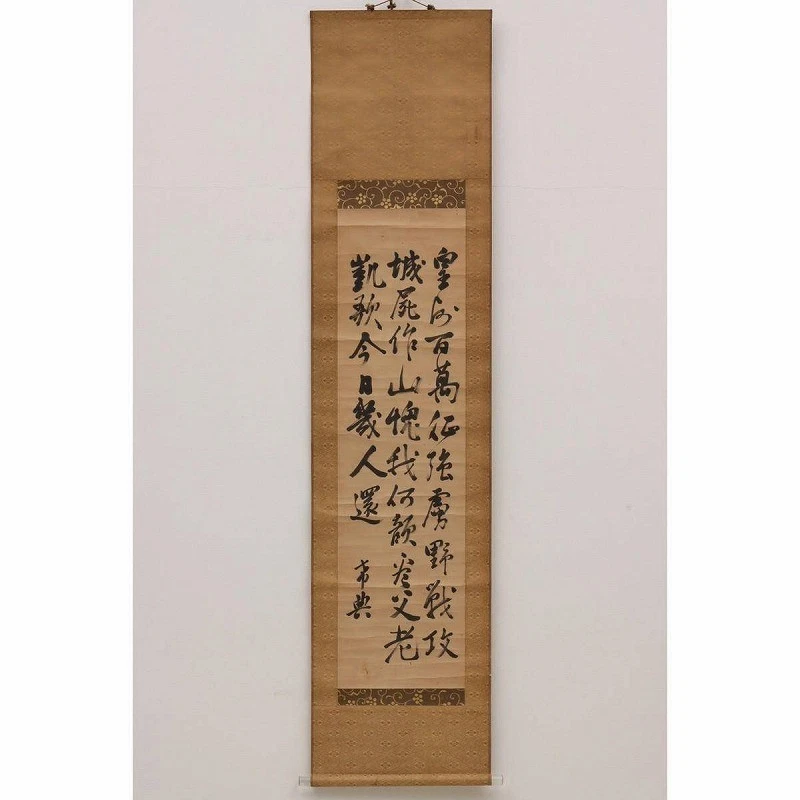 皇師百萬征強虜野戰攻
城屍作山愧我何顔看父老
凱歌今日幾人還
希典